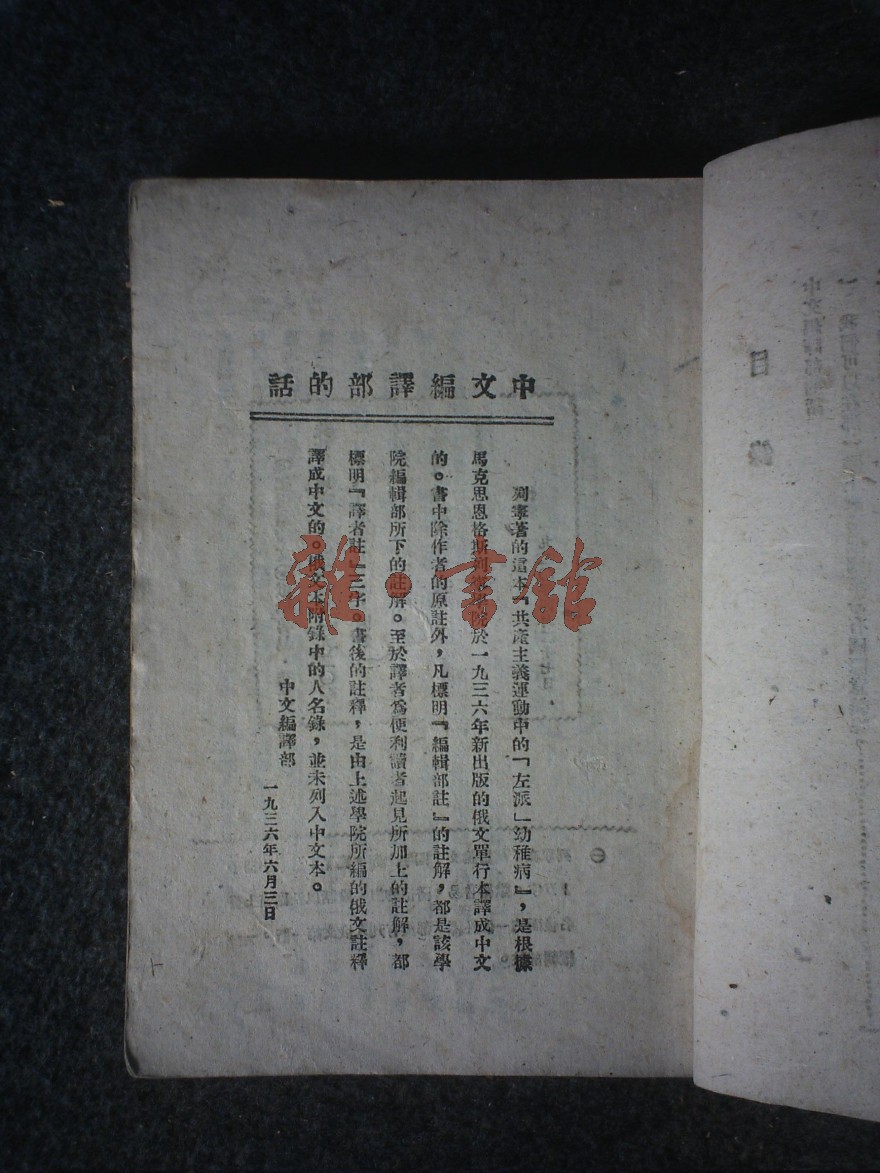 中文編譯部的話
列寧著的這本『共產主義運動中的「左派」幼稚病』，是根據
馬克思恩格斯列寧學院於一九三六年新出版的俄文單行本譯成中文
的。書中除作者的原註外，凡標明『編輯部註』的註解，都是該學
院編輯部所下的註解。至於譯者為便利讀者起見所加上的註解，都
標明『譯者註』三字。書後的註釋，是由上述學院所編的俄文註釋
譯成中文的。俄文本附錄中的人名錄，並未列入中文本。
中文編譯部
一九三六年六月三日
雜·書館
目